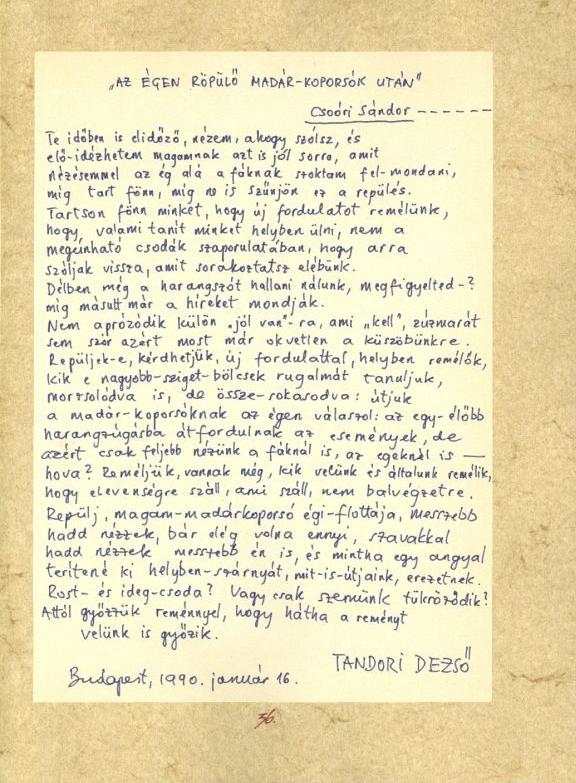 „AZ ÉGEN RÖPÜLŐ MADÁR-KOPORSÓK UTÁN"
Csoóri Sándor ------
Te időben is elidőző, nézem, ahogy szólsz, és
elő-idézhetem magamnak azt is jól sorra, amit
nézésemmel az ég alá a fáknak szoktam fel-mondani,
míg tart fönn, míg ne is szűnjön ez a repülés.
Tartson fönn minket, hogy új fordulatot remélünk,
hogy, valami tanít minket helyben ülni, nem a
megúnható csodák szaporulatában, hogy arra
szóljak vissza, amit sorakoztatsz elébünk.
Délben még a harangszót hallani nálunk, megfigyelted-?
míg másutt már a híreket mondják.
Nem aprózódik külön „jól van"-ra, ami „kell", zúzmarát
sem szór azért most már okvetlen a küszöbünkre.
Repüljek-e, kérdhetjük, új fordulattal, helyben remélők,
kik e nagyobb-sziget-bölcsek rugalmát tanuljuk,
morzsolódva is, de össze-sokasodva: útjuk
a madár-koporsóknak az égen válaszol: az egy-előbb
harangzúgásba átfordulnak az események, de
azért csak feljebb nézünk a fáknál is, az egeknél is —
hova? Reméljük, vannak még, kik velünk és általunk remélik,
hogy elevenségre száll, ami száll, nem balvégzetre.
Repülj, magam-madárkoporsó égi-flottája, messzebb
hadd nézzek, bár elég volna ennyi, szavakkal
hadd nézzek messzebb én is, és mintha egy angyal
terítené ki helyben-szárnyát, mit-is-útjaink, erezetnek.
Rost- és ideg-csoda? Vagy csak szemünk tükröződik?
Attól győzzük reménnyel, hogy hátha a reményt
velünk is győzik.
TANDORI DEZSŐ
Budapest, 1990. január 16.
36.